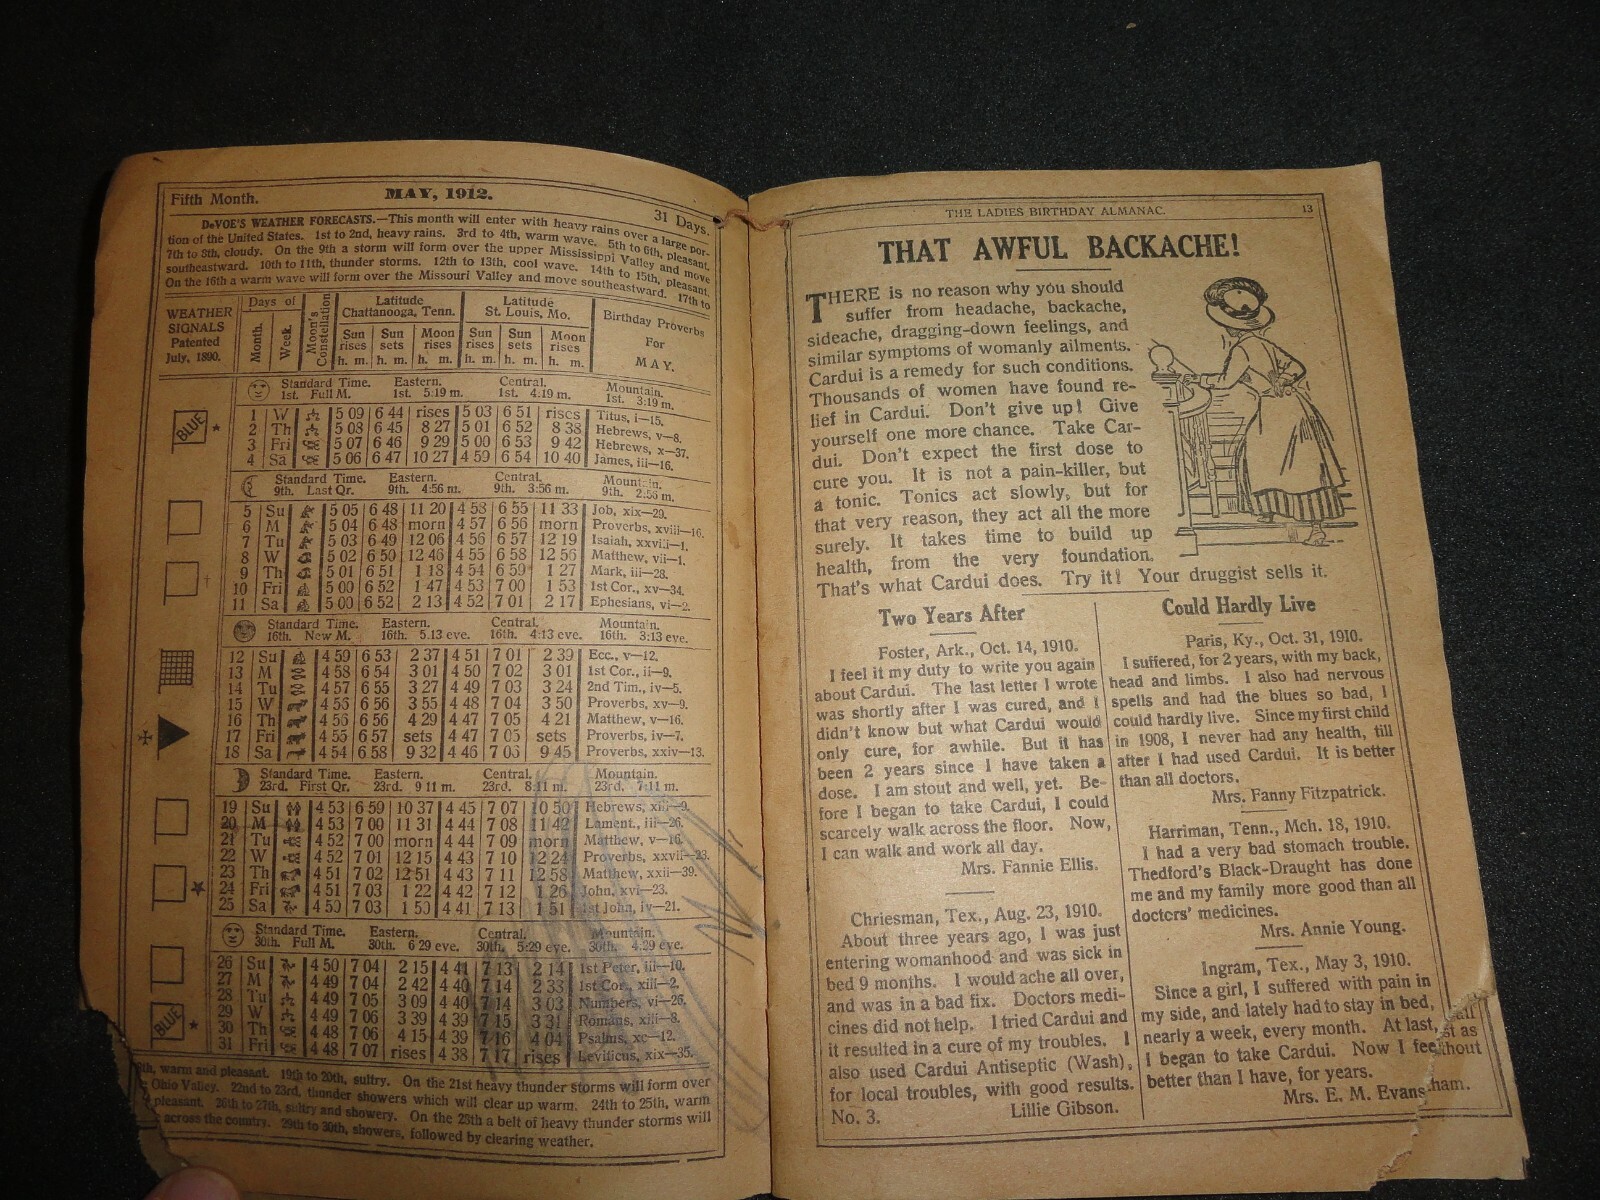 Fifth Month. MAY, 1912. 31 Days.
DeVOE'S WEATHER FORECASTS.—This month will enter with heavy rains over a large por-
tion of the United States. 1st to 2nd, heavy rains. 3rd to 4th, warm wave. 5th to 6th, pleasant.
7th to 8th, cloudy. On the 9th a storm will form over the upper Mississippi Valley and move
southeastward. 10th to 11th, thunder storms. 12th to 13th, cool wave. 14th to 15th, pleasant.
On the 16th a warm wave will form over the Missouri Valley and move southeastward. 17th to
WEATHER SIGNALS Patented July, 1890.
Days of Month. Week.
Moon's Constellation
Latitude Chattanooga, Tenn.
Latitude St. Louis, Mo.
Birthday Proverbs For MAY.
Sun rises Sun sets Moon rises Sun rises Sun sets Moon rises
h. m. h. m. h. m. h. m. h. m. h. m.
Standard Time. Eastern. Central. Mountain.
1st. Full M. 1st. 5:19 m. 1st. 4:19 m. 1st. 3:19 m.
BLUE
1 W 5 09 6 44 rises 5 03 6 51 rises Titus, i—15.
2 Th 5 08 6 45 8 27 5 01 6 52 8 38 Hebrews, v—8.
3 Fri 5 07 6 46 9 29 5 00 6 53 9 42 Hebrews, x—37.
4 Sa 5 06 6 47 10 27 4 59 6 54 10 40 James, iii—16.
Standard Time. Eastern. Central. Mountain.
9th. Last Qr. 9th. 4:56 m. 9th. 3:56 m. 9th. 2:56 m.
5 Su 5 05 6 48 11 20 4 58 6 55 11 33 Job, xix—29.
6 M 5 04 6 48 morn 4 57 6 56 morn Proverbs, xviii—16.
7 Tu 5 03 6 49 12 06 4 56 6 57 12 19 Isaiah, xxviii—1.
8 W 5 02 6 50 12 46 4 55 6 58 12 56 Matthew, vii—1.
9 Th 5 01 6 51 1 18 4 54 6 59 1 27 Mark, iii—28.
10 Fri 5 00 6 52 1 47 4 53 7 00 1 53 1st Cor., xv—34.
11 Sa 5 00 6 52 2 13 4 52 7 01 2 17 Ephesians, vi—2.
Standard Time. Eastern. Central. Mountain.
16th. New M. 16th. 5.13 eve. 16th. 4:13 eve. 16th. 3:13 eve.
12 Su 4 59 6 53 2 37 4 51 7 01 2 39 Ecc., v—12.
13 M 4 58 6 54 3 01 4 50 7 02 3 01 1st Cor., ii—9.
14 Tu 4 57 6 55 3 27 4 49 7 03 3 24 2nd Tim., iv—5.
15 W 4 56 6 56 3 55 4 48 7 04 3 50 Proverbs, xv—9.
16 Th 4 56 6 56 4 29 4 47 7 05 4 21 Matthew, v—16.
17 Fri 4 55 6 57 sets 4 47 7 05 sets Proverbs, iv—7.
18 Sa 4 54 6 58 9 32 4 46 7 06 9 45 Proverbs, xxiv—13.
Standard Time. Eastern. Central. Mountain.
23rd. First Qr. 23rd. 9 11 m. 23rd. 8:11 m. 23rd. 7:11 m.
19 Su 4 53 6 59 10 37 4 45 7 07 10 50 Hebrews, xiii—9.
20 M 4 53 7 00 11 31 4 44 7 08 11 42 Lament., iii—26.
21 Tu 4 52 7 00 morn 4 44 7 09 morn Matthew, v—16.
22 W 4 52 7 01 12 15 4 43 7 10 12 24 Proverbs, xxvii—23.
23 Th 4 51 7 02 12 51 4 43 7 11 12 58 Matthew, xxii—39.
24 Fri 4 51 7 03 1 22 4 42 7 12 1 26 John, xvi—23.
25 Sa 4 50 7 03 1 50 4 41 7 13 1 51 1st John, iv—21.
Standard Time. Eastern. Central. Mountain.
30th. Full M. 30th. 6 29 eve. 30th. 5:29 eve. 30th. 4:29 eve.
26 Su 4 50 7 04 2 15 4 41 7 13 2 14 1st Peter, iii—10.
27 M 4 49 7 04 2 42 4 40 7 14 2 33 1st Cor., xiii—2.
28 Tu 4 49 7 05 3 09 4 40 7 14 3 03 Numbers, vi—26.
29 W 4 49 7 06 3 39 4 39 7 15 3 31 Romans, xiii—8.
30 Th 4 48 7 06 4 15 4 39 7 16 4 04 Psalms, xc—12.
31 Fri 4 48 7 07 rises 4 38 7 17 rises Leviticus, xix—35.
BLUE
th, warm and pleasant. 19th to 20th, sultry. On the 21st heavy thunder storms will form over
Ohio Valley. 22nd to 23rd, thunder showers which will clear up warm. 24th to 25th, warm
pleasant. 26th to 27th, sultry and showery. On the 28th a belt of heavy thunder storms will
across the country. 29th to 30th, showers, followed by clearing weather.
THE LADIES BIRTHDAY ALMANAC. 13
THAT AWFUL BACKACHE!
THERE is no reason why you should
suffer from headache, backache,
sideache, dragging-down feelings, and
similar symptoms of womanly ailments.
Cardui is a remedy for such conditions.
Thousands of women have found re-
lief in Cardui. Don't give up! Give
yourself one more chance. Take Car-
dui. Don't expect the first dose to
cure you. It is not a pain-killer, but
a tonic. Tonics act slowly, but for
that very reason, they act all the more
surely. It takes time to build up
health, from the very foundation.
That's what Cardui does. Try it! Your druggist sells it.
Two Years After
Foster, Ark., Oct. 14, 1910.
I feel it my duty to write you again
about Cardui. The last letter I wrote
was shortly after I was cured, and I
didn't know but what Cardui would
only cure, for awhile. But it has
been 2 years since I have taken a
dose. I am stout and well, yet. Be-
fore I began to take Cardui, I could
scarcely walk across the floor. Now,
I can walk and work all day.
Mrs. Fannie Ellis.
Chriesman, Tex., Aug. 23, 1910.
About three years ago, I was just
entering womanhood and was sick in
bed 9 months. I would ache all over,
and was in a bad fix. Doctors medi-
cines did not help. I tried Cardui and
it resulted in a cure of my troubles. I
also used Cardui Antiseptic (Wash),
for local troubles, with good results.
No. 3. Lillie Gibson.
Could Hardly Live
Paris, Ky., Oct. 31, 1910.
I suffered, for 2 years, with my back,
head and limbs. I also had nervous
spells and had the blues so bad, I
could hardly live. Since my first child
in 1908, I never had any health, till
after I had used Cardui. It is better
than all doctors.
Mrs. Fanny Fitzpatrick.
Harriman, Tenn., Mch. 18, 1910.
I had a very bad stomach trouble.
Thedford's Black-Draught has done
me and my family more good than all
doctors' medicines.
Mrs. Annie Young.
Ingram, Tex., May 3, 1910.
Since a girl, I suffered with pain in
my side, and lately had to stay in bed,
nearly a week, every month. At last,
I began to take Cardui. Now I feel
better than I have, for years.
Mrs. E. M. Evans
st as
thout
ham.